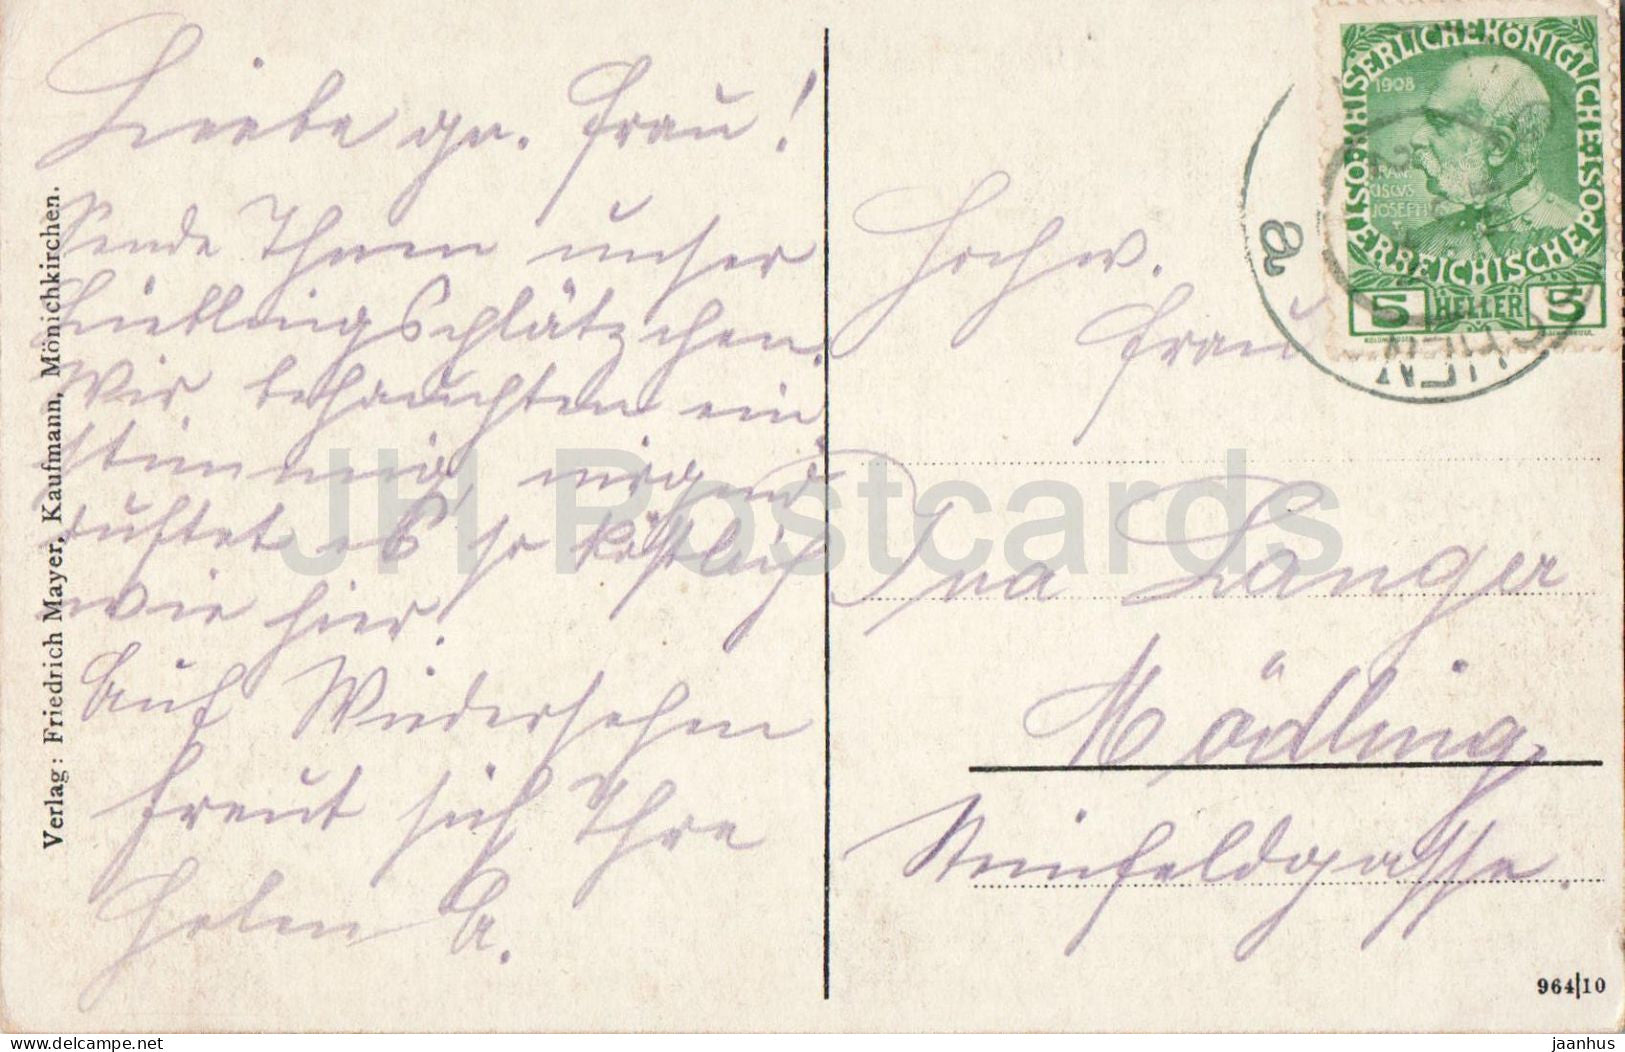 Liebe gn. Frau!
Sende Ihnen unser
Lieblingsplätzchen.
Wir behaupten ein-
stimmig, nirgends
duftet es so köstlich
wie hier.
Auf Wiedersehen
freut sich Ihre
Helen
Verlag: Friedrich Mayer, Kaufmann, Mönichkirchen.
KAISERLICHE KÖNIGLICHE
ÖSTERREICHISCHE POST
1908
FRAN
CISCVS
JOSEPH I
5 HELLER 5
a
Hochw.
Frau
Ina Langer
Mödling
Steinfeldgasse.
964|10
JH Postcards
www.delcampe.net
jaanhus